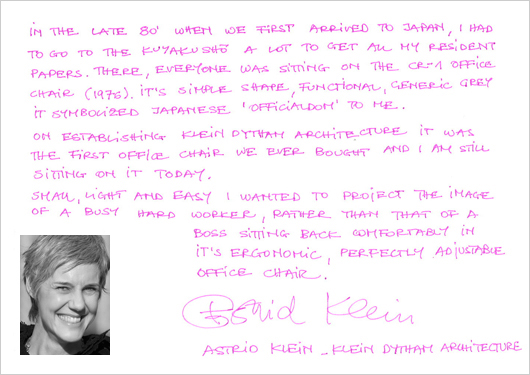 IN THE LATE 80' WHEN WE FIRST ARRIVED TO JAPAN, I HAD
TO GO TO THE KUYAKUSHŌ A LOT TO GET ALL MY RESIDENT
PAPERS. THERE, EVERYONE WAS SITTING ON THE CR-1 OFFICE
CHAIR (1975). IT'S SIMPLE SHAPE, FUNCTIONAL, GENERIC GREY
IT SYMBOLIZED JAPANESE 'OFFICIALDOM' TO ME.
ON ESTABLISHING KLEIN DYTHAM ARCHITECTURE IT WAS
THE FIRST OFFICE CHAIR WE EVER BOUGHT AND I AM STILL
SITTING ON IT TODAY.
SMALL, LIGHT AND EASY I WANTED TO PROJECT THE IMAGE
OF A BUSY HARD WORKER, RATHER THAN THAT OF A
BOSS SITTING BACK COMFORTABLY IN
IT'S ERGONOMIC, PERFECTLY ADJUSTABLE
OFFICE CHAIR.
Astrid Klein
ASTRID KLEIN - KLEIN DYTHAM ARCHITECTURE